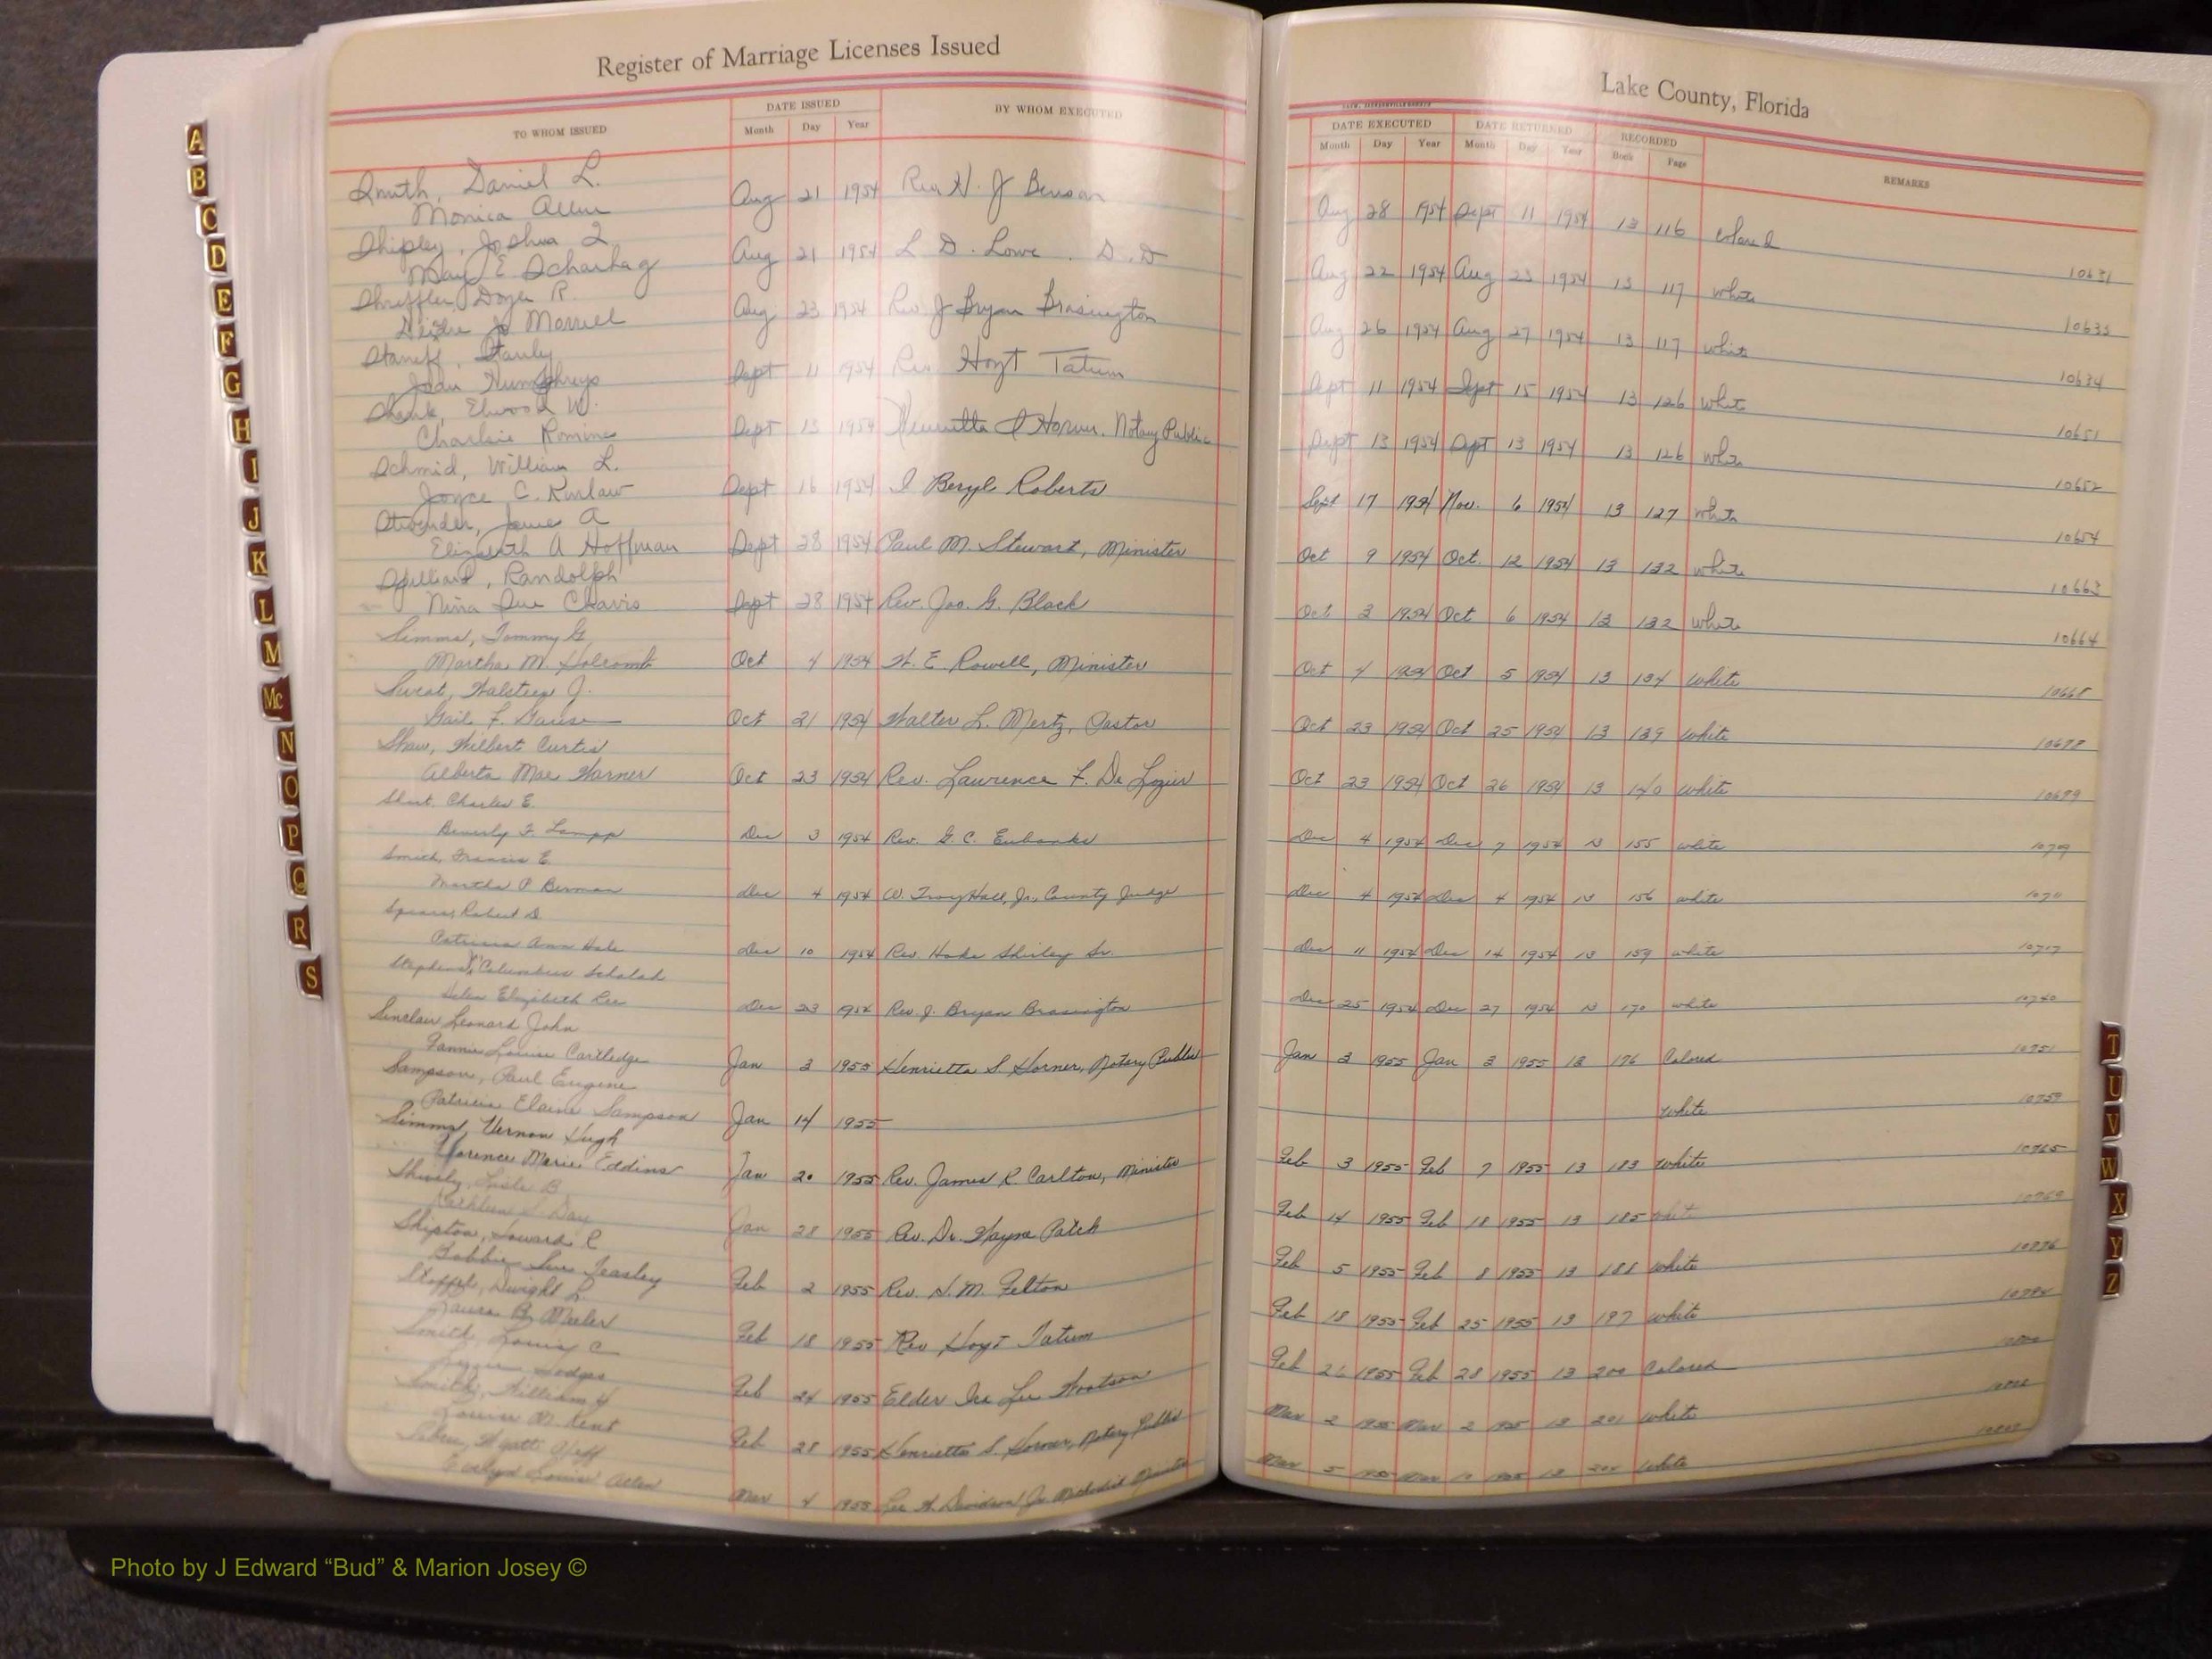 Register of Marriage Licenses Issued
Lake County, Florida
TO WHOM ISSUED
DATE ISSUED
Month Day Year
BY WHOM EXECUTED
DATE EXECUTED
Month Day Year
DATE RETURNED
Month Day Year
RECORDED
Book Page
REMARKS
Smith, Daniel L.
Monica Allen
Aug 21 1954 Rev H. J Benson
Aug 28 1954 Sept 11 1954 13 116 Colored 10631
Shipley, Joshua
May E Scharhag
Aug 21 1954 L D. Lowe. D.D
Aug 22 1954 Aug 23 1954 13 117 White 10633
Shreffler, R.
Morrell
Aug 23 1954 Rev J Bryan Brasington
Aug 26 1954 Aug 27 1954 13 117 White 10634
Stanly
Joan Humphreys
Sept 11 1954 Rev Hoyt Tatum
Sept 11 1954 Sept 15 1954 13 126 White 10651
Shenk, Elwood W.
Charlsie Romine
Sept 13 1954 Henrietta S Horner, Notary Public
Sept 13 1954 Sept 13 1954 13 126 White 10652
Schmid, William L.
Joyce C. Kinlaw
Sept 16 1954 I Beryl Roberts
Sept 17 1954 Nov. 6 1954 13 127 White 10654
James A
Elizabeth A Hoffman
Sept 28 1954 Paul M. Stewart, Minister
Oct 9 1954 Oct. 12 1954 13 132 White 10663
Randolph
Nina Sue Chavis
Sept 28 1954 Rev. Jno. G. Black
Oct 3 1954 Oct 6 1954 13 132 White 10664
Simms, Tommy G
Martha M. Holcomb
Oct 4 1954 H. E. Rowell, Minister
Oct 4 1954 Oct 5 1954 13 134 White
Sweat, Halsteen J.
Gail F. Gause
Oct 21 1954 Walter L. Mertz, Pastor
Oct 23 1954 Oct 25 1954 13 139 White
Shaw, Wilbert Curtis
Alberta Mae Warner
Oct 23 1954 Rev. Laurence F. De Lozier
Oct 23 1954 Oct 26 1954 13 140 White
Charles E.
Beverly F. Lampp
Dec 3 1954 Rev. G. C. Eubanks
Dec 4 1954 Dec 7 1954 13 155 White 10709
Smith, Francis E.
Martha P Berman
Dec 4 1954 W. Troy Hall, Jr., County Judge
Dec 4 1954 Dec 4 1954 13 156 White 10711
Spears, Robert D.
Patricia Ann Hale
Dec 10 1954 Rev Hoke Shirley Sr.
Dec 11 1954 Dec 14 1954 13 159 White 10717
Stephens, Columbus
Helen Elizabeth Lee
Dec 23 1954 Rev. J. Bryan Brasington
Dec 25 1954 Dec 27 1954 13 170 White 10740
Sinclair Leonard John
Fannie Louise Cartledge
Jan 3 1955 Henrietta S Horner, Notary Public
Jan 3 1955 Jan 3 1955 13 176 Colored 10751
Sampson, Paul Eugene
Patricia Elaine Sampson
Jan 14 1955
White 10759
Simms, Vernon Hugh
Florence Marie Eddins
Jan 20 1955 Rev. James R. Carlton, Minister
Feb 3 1955 Feb 7 1955 13 183 White 10765
Shively, Lisle B
Kathleen S Day
Jan 28 1955 Rev. Dr. Wayne Patch
Feb 14 1955 Feb 18 1955 13 185 White
Shipton, Howard R
Bobbie Sue Teasley
Feb 2 1955 Rev. H. M. Felton
Feb 5 1955 Feb 8 1955 13 188 White 10776
Stoffel, Dwight L.
Laura B. Meeler
Feb 18 1955 Rev Hoyt Tatum
Feb 18 1955 Feb 25 1955 13 197 White
Smith, Louis C
Feb 24 1955 Elder Ira Lee
Feb 26 1955 Feb 28 1955 13 200 Colored
Smith, William
Louise M. Kent
Feb 28 1955 Henrietta S. Horner, Notary Public
Mar 2 1955 Mar 2 1955 13 201 White
Evelyn Louise Allen
Mar 4 1955 Lee H. Davidson Jr Methodist
Mar 5 1955 Mar 10 1955 13 White
A
B
C
D
E
F
G
H
I
J
K
L
M
Mc
N
O
P
Q
R
S
T
U
V
W
X
Y
Z
Photo by J Edward “Bud” & Marion Josey ©